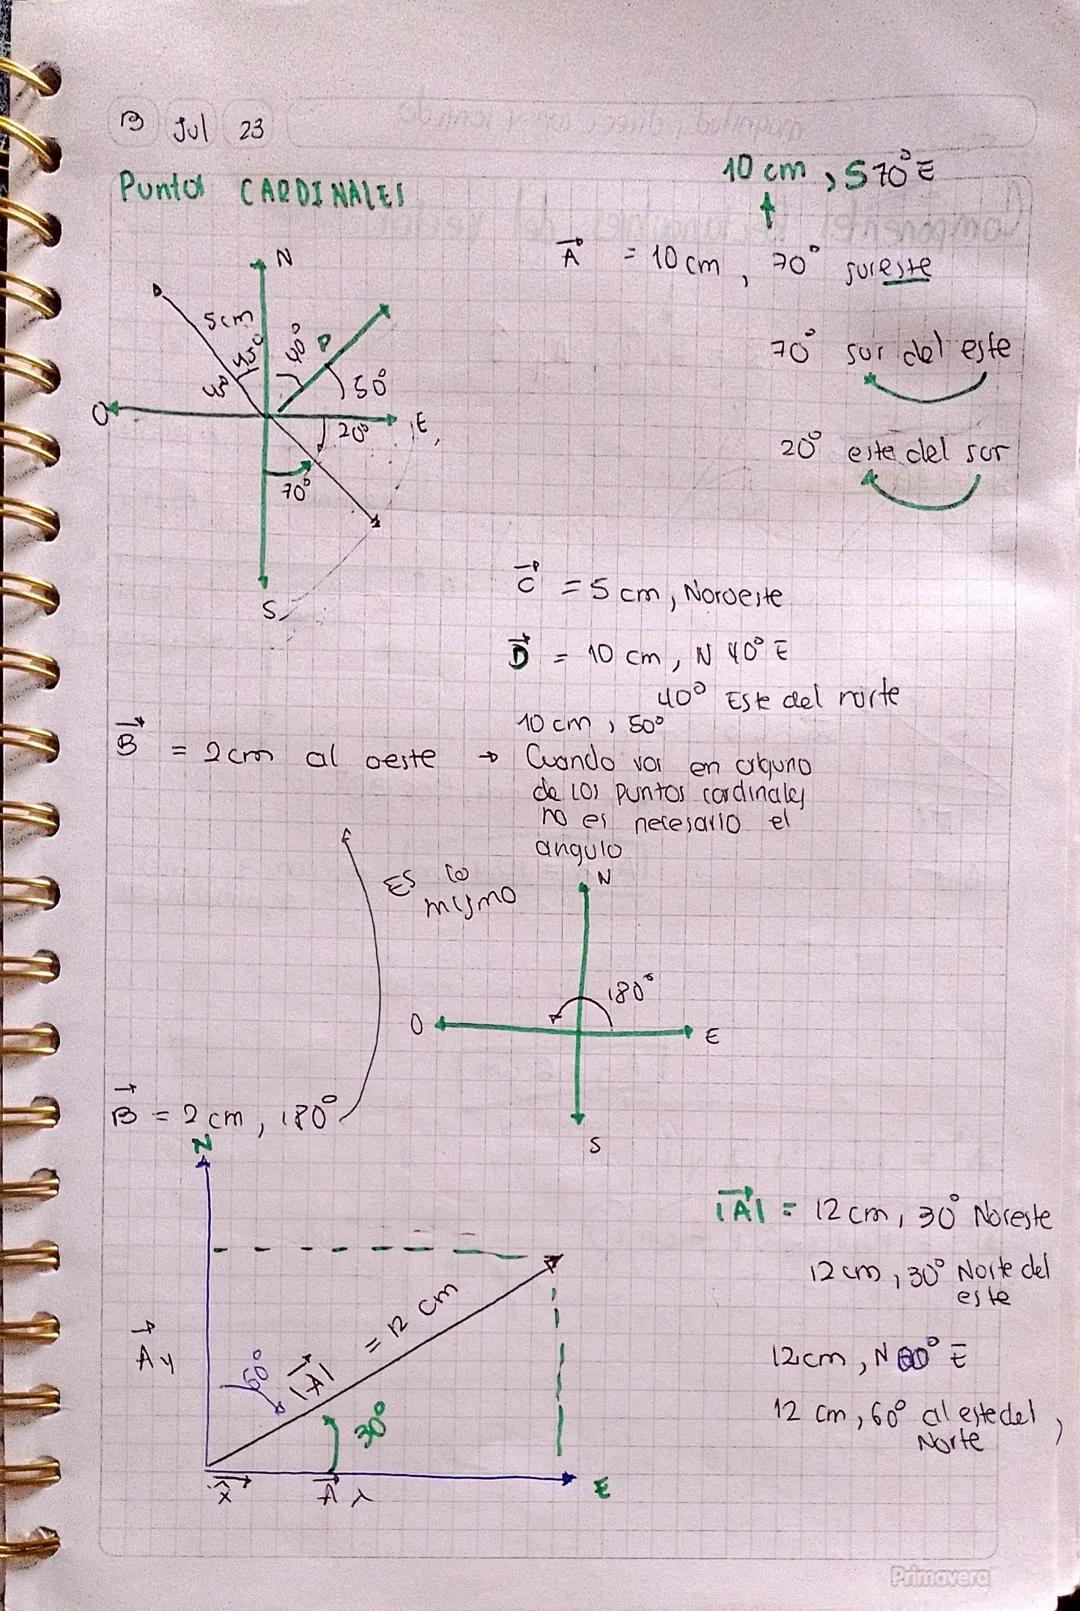 13 Jul 23
Puntos CARDINALES
10 cm, S70°E
A = 10 cm, 70° sureste
N
5cm
45°
40°
D
50°
O
E
20°
70°
S
70° sur del este
20° este del sur
C = 5 cm, Noroeste
D = 10 cm, N 40° E
40° Este del norte
10 cm, 50°
B = 2cm al oeste → Cuando vas en alguno
de los puntos cardinales
no es necesario el
angulo
Es lo
mismo
N
180°
O
E
S
B = 2 cm, 180°
N
|A| = 12 cm, 30° Noreste
12 cm, 30° Norte del
este
12cm, N60° E
12 cm, 60° al este del,
Norte
Ay
60°
|A| = 12 cm
30°
x
A x
E
Primavera